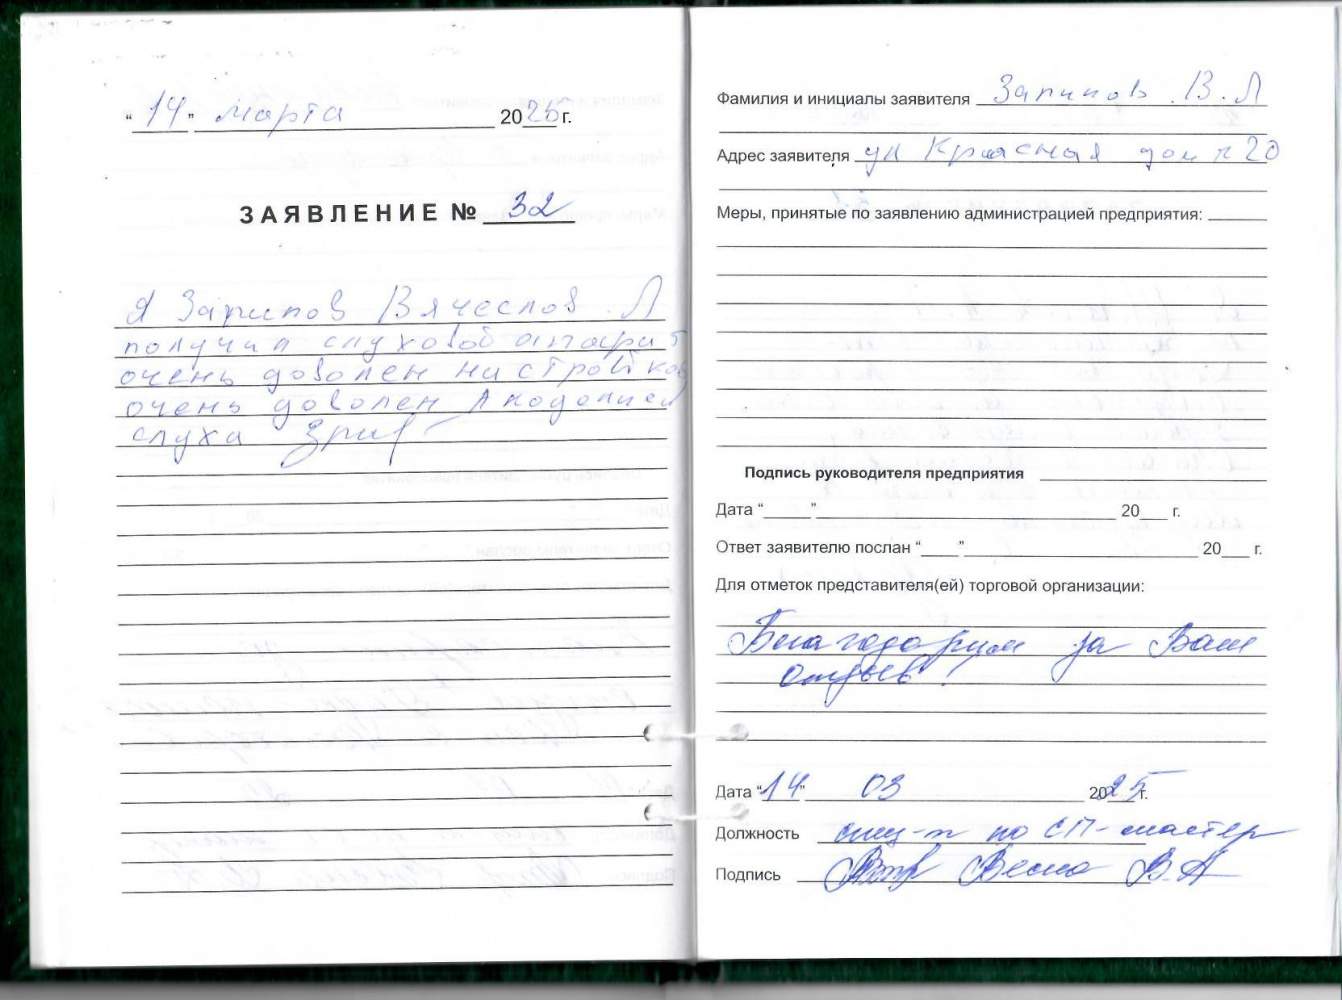 “14” марта 2025 г.
ЗАЯВЛЕНИЕ № 32
Я Зарипов Вячеслов Л
получил слуховоб апарат
очень доволен настройкой
очень доволен
слуха
Фамилия и инициалы заявителя Зарипов В. Л
Адрес заявителя ул Красная дом 20
Меры, принятые по заявлению администрацией предприятия:
Подпись руководителя предприятия
Дата “ ” 20 г.
Ответ заявителю послан “ ” 20 г.
Для отметок представителя(ей) торговой организации:
Благодарим за Ваш
отзыв!
Дата “14” 03 2025 г.
Должность спец-т по СП-мастер
Подпись В.А